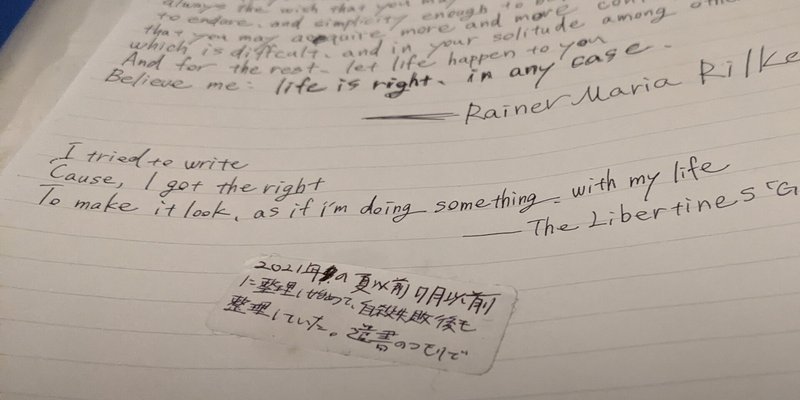 always the wish that you may
to endure, and simplicity enough to
that you may acquire more and more
which is difficult, and in your solitude among
And for the rest, let life happen to you.
Believe me: life is right, in any case.
— Rainer Maria Rilke
I tried to write
Cause, I got the right
To make it look, as if i'm doing something with my life
— The Libertines "G
2021年の夏以前7月以前
に整理し始めて、自殺失敗後も
整理していた。遺書のつもりで